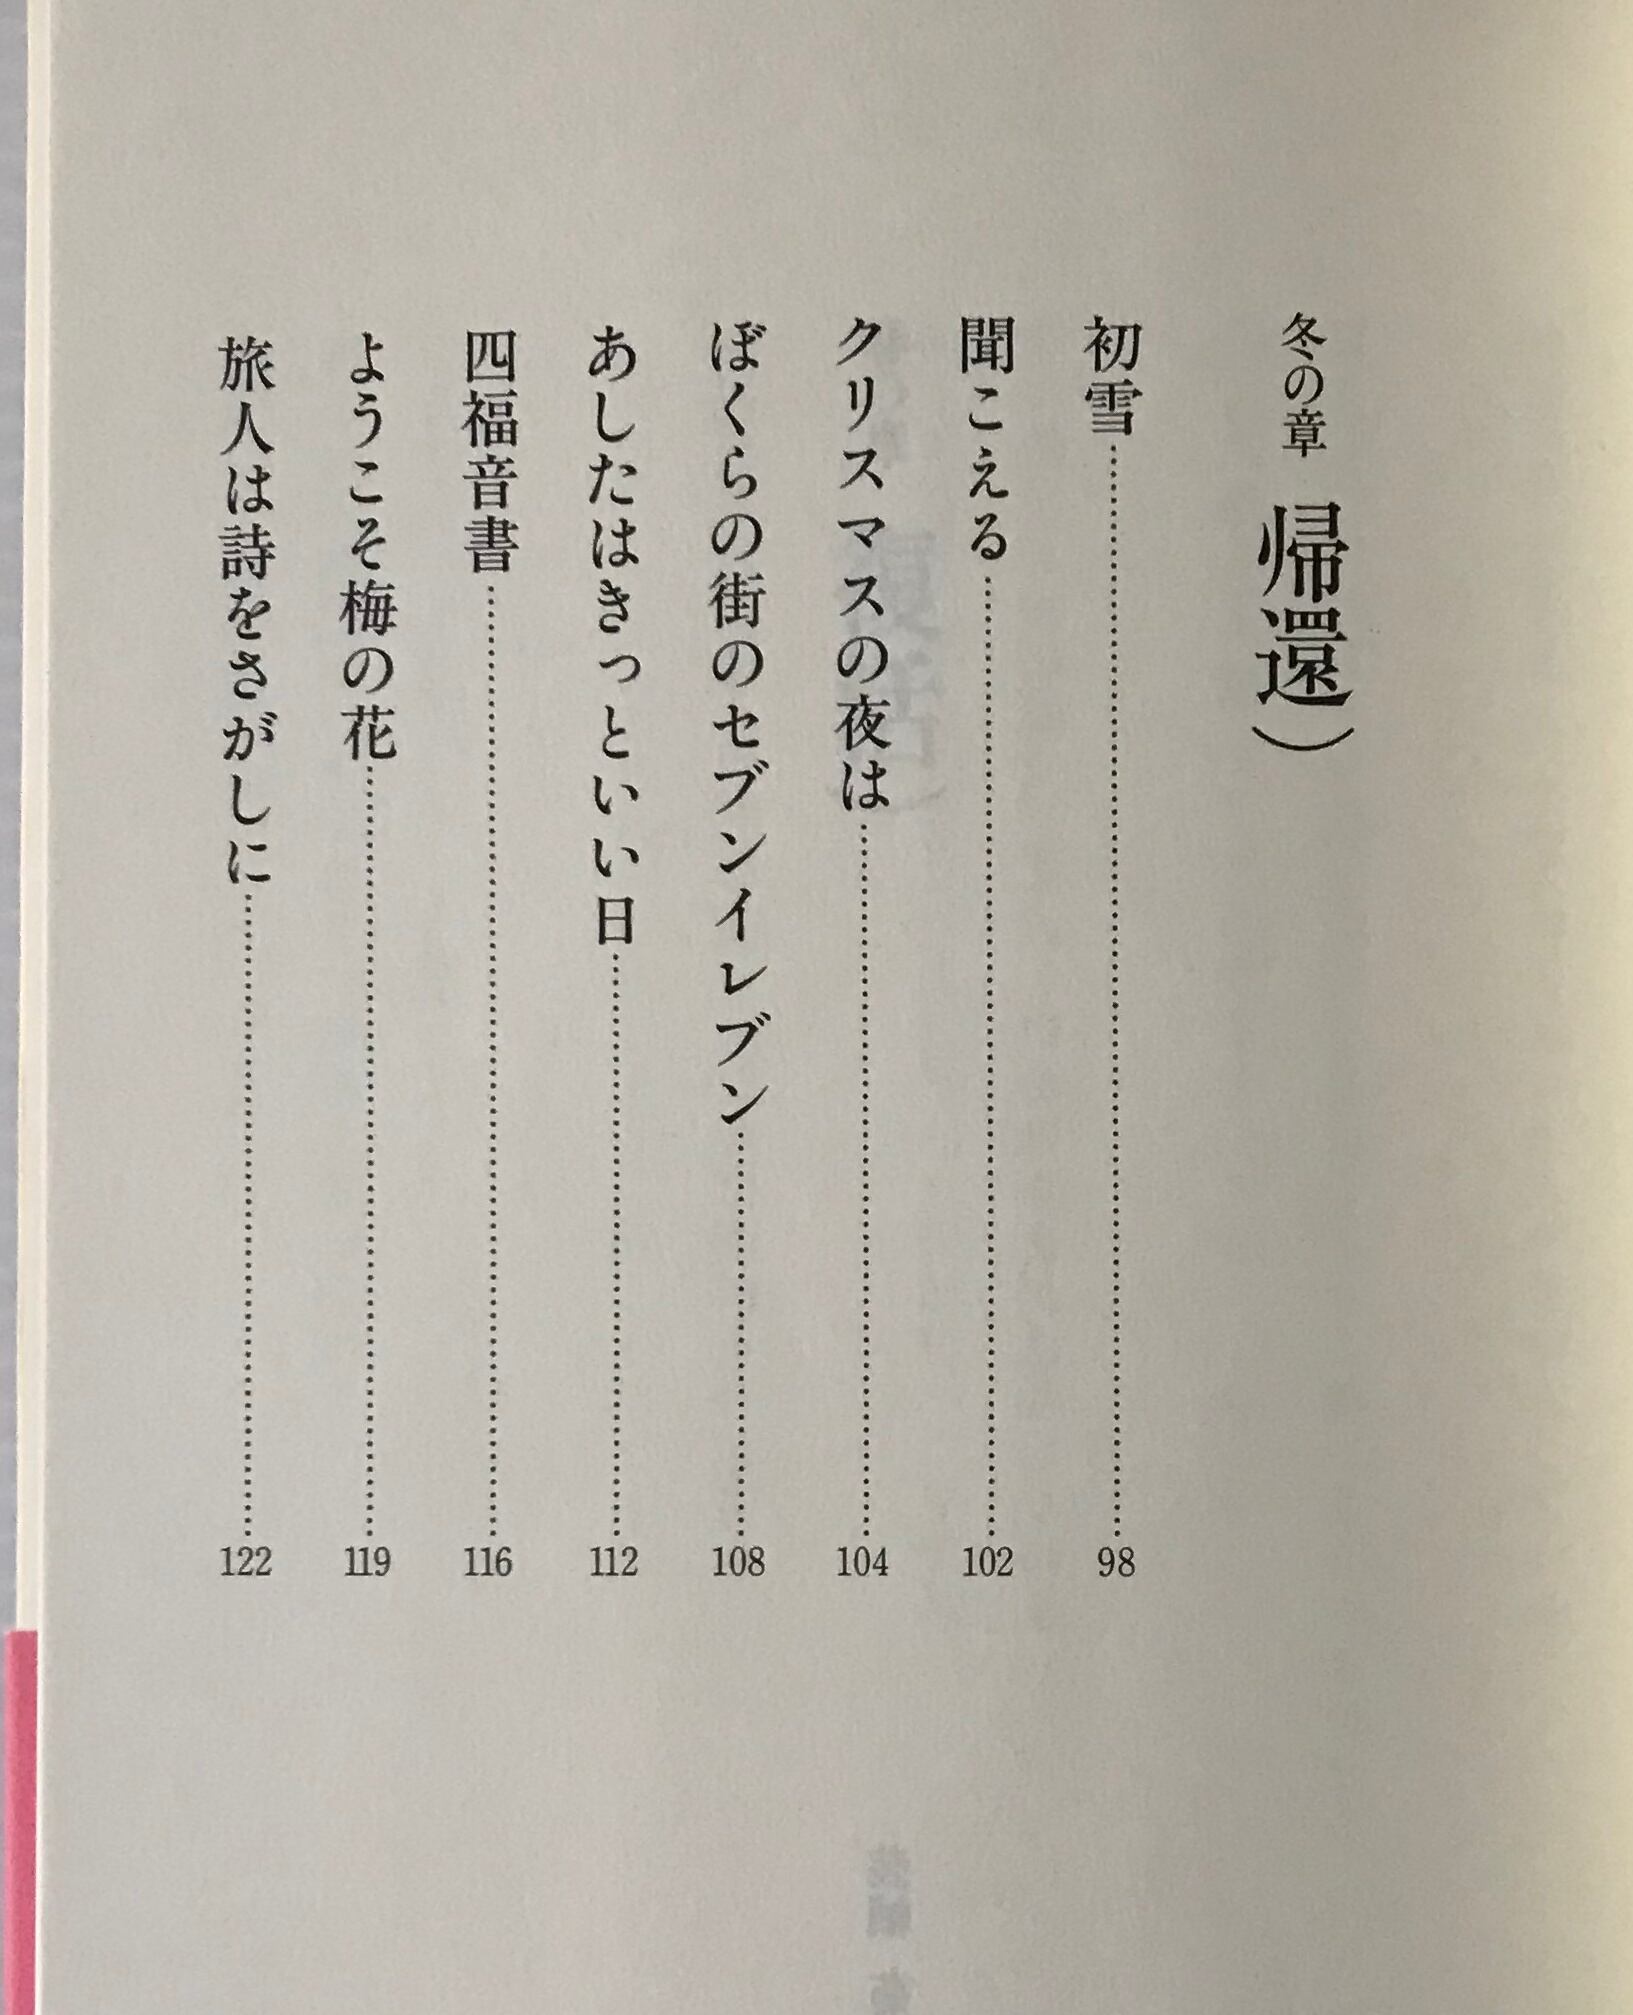 冬の章 帰還)
初雪……98
聞こえる……102
クリスマスの夜は……104
ぼくらの街のセブンイレブン……108
あしたはきっといい日……112
四福音書……116
ようこそ梅の花……119
旅人は詩をさがしに……122